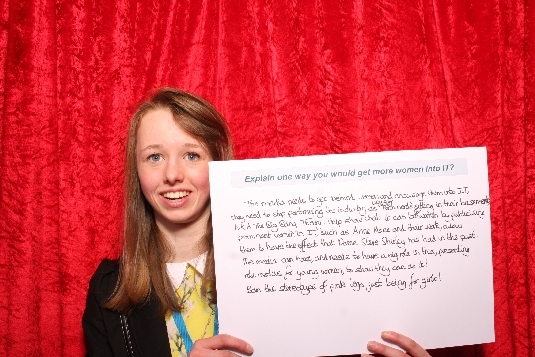 Explain one way you would get more women into IT?
The media needs to get behind women and encourage them into I.T,
they need to stop portraying the industry as "men nerds sitting in their basements"
A.K.A The Big Bang Theory. Help show that it can be women by publicising
prominent women (in IT) such as Anne Marie and their work, allow
them to have the effect that Dame Steve Shirley has had in the past.
The media can host, and needs to have a big role in this, presenting
role models, for young women, to show they can do it!
Ban the stereotype of pink lego, just being for girls!